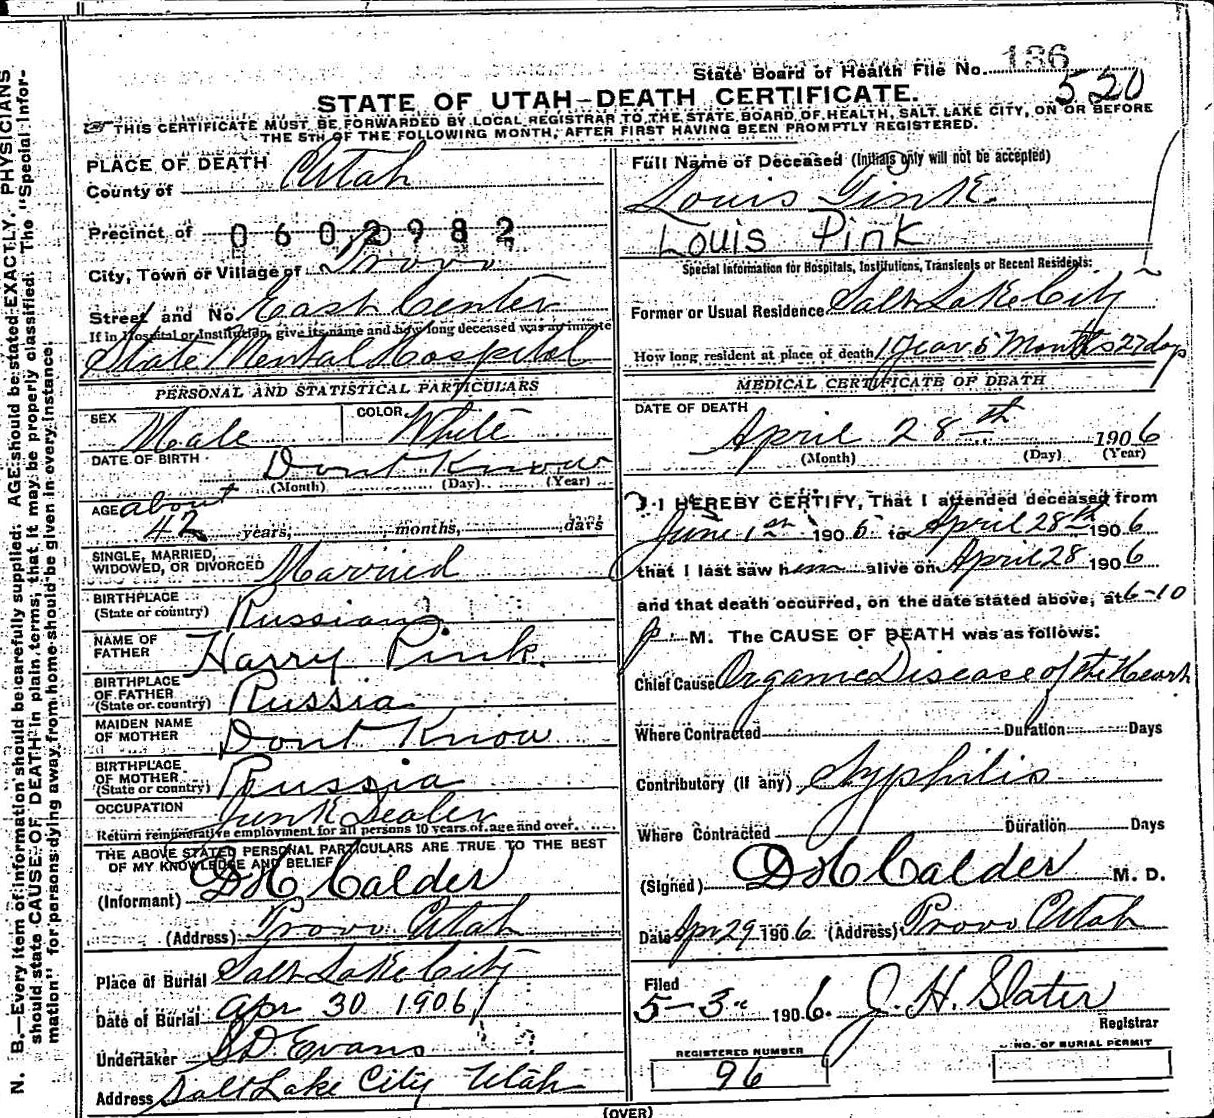 State Board of Health File No. 186
520
STATE OF UTAH—DEATH CERTIFICATE.
THIS CERTIFICATE MUST BE FORWARDED BY LOCAL REGISTRAR TO THE STATE BOARD OF HEALTH, SALT LAKE CITY, ON OR BEFORE
THE 5TH OF THE FOLLOWING MONTH, AFTER FIRST HAVING BEEN PROMPTLY REGISTERED.
PLACE OF DEATH
County of Utah
Precinct of 0602982
City, Town or Village of Provo
Street and No. East Center
If in Hospital or Institution, give its name and how long deceased was an inmate
State Mental Hospital
PERSONAL AND STATISTICAL PARTICULARS
SEX Male COLOR White
DATE OF BIRTH Dont Know
(Month) (Day) (Year)
AGE about
42 years, months, days
SINGLE, MARRIED,
WIDOWED, OR DIVORCED Married
BIRTHPLACE
(State or country) Russian
NAME OF
FATHER Harry Pink.
BIRTHPLACE
OF FATHER
(State or country) Russia
MAIDEN NAME
OF MOTHER Dont Know
BIRTHPLACE
OF MOTHER
(State or country) Russia
OCCUPATION Junk Dealer
Return remunerative employment for all persons 10 years of age and over.
THE ABOVE STATED PERSONAL PARTICULARS ARE TRUE TO THE BEST
OF MY KNOWLEDGE AND BELIEF
(Informant) D H Calder
(Address) Provo Utah
Place of Burial Salt Lake City
Date of Burial Apr 30 1906
Undertaker S D Evans
Address Salt Lake City Utah
Full Name of Deceased (Initials only will not be accepted)
Louis Pink.
Louis Pink
Special Information for Hospitals, Institutions, Transients or Recent Residents:
Former or Usual Residence Salt Lake City
How long resident at place of death 1 year 5 Months 27 days
MEDICAL CERTIFICATE OF DEATH
DATE OF DEATH
April 28th 1906
(Month) (Day) (Year)
I HEREBY CERTIFY, That I attended deceased from
June 1st 190 to April 28th 1906
that I last saw him alive on April 28 1906
and that death occurred, on the date stated above, at 6-10
P M. The CAUSE OF DEATH was as follows:
Chief Cause Organic Disease of the Heart
Where Contracted Duration Days
Contributory (if any) Syphilis
Where Contracted Duration Days
(Signed) D H Calder M. D.
Date Apr 29 1906. (Address) Provo Utah
Filed
5-3- 1906. J. H. Slater
Registrar
REGISTERED NUMBER
96
NO. OF BURIAL PERMIT
(OVER)
N. B.—Every item of information should be carefully supplied. AGE should be stated EXACTLY. PHYSICIANS
should state CAUSE OF DEATH in plain terms, that it may be properly classified. The "Special Infor-
mation" for persons dying away from home should be given in every instance.